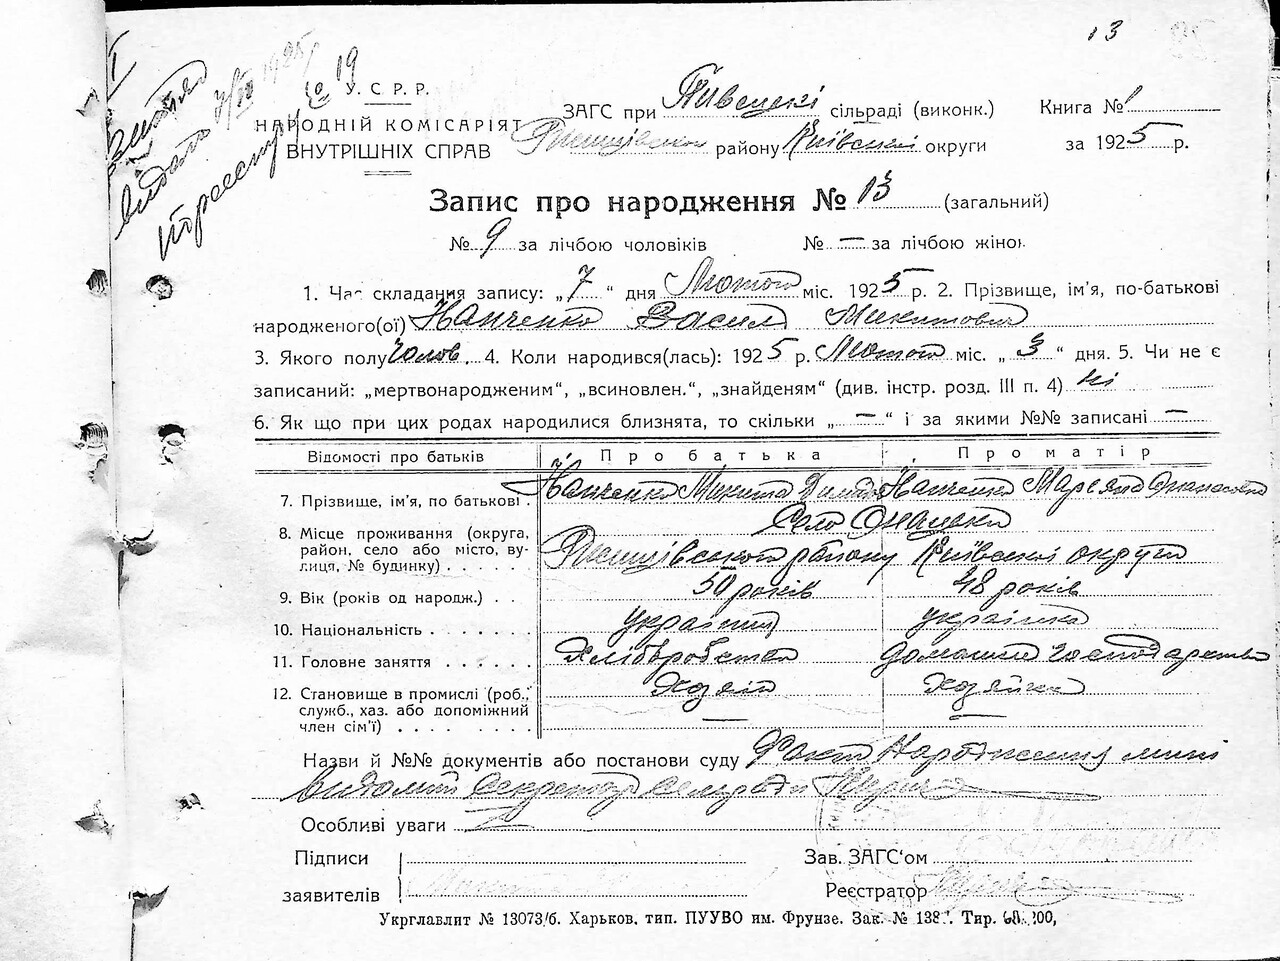 13
витяг
видано 7/III 1925 р
по реєстру № 19
У. С. Р. Р.
НАРОДНІЙ КОМІСАРІЯТ
ВНУТРІШНІХ СПРАВ
ЗАГС при Півецькі сільраді (виконк.) Книга № 1
Ржищівськом району Київської округи за 1925 р.
Запис про народження № 13 (загальний)
№ 9 за лічбою чоловіків № — за лічбою жінок
1. Час складання запису: „ 7 “ дня Лютого міс. 1925 р. 2. Прізвище, ім'я, по-батькові
народженого(ої) Іванченко Васил Микитович
3. Якого полу Чолов. 4. Коли народився(лась): 1925 р. Лютого міс. „ 3 “ дня. 5. Чи не є
записаний: „мертвонародженим“, „всиновлен.“, „знайденям“ (див. інстр. розд. III п. 4) ні
6. Як що при цих родах народилися близнята, то скільки „ — “ і за якими №№ записані —
Відомості про батьків Про батька Про матір
7. Прізвище, ім'я, по батькові . Іванченко Микита Іванченко Мар'яна
Село
8. Місце проживання (округа,
район, село або місто, вулиця, № будинку) . . . . . Ржищівського району Київської округи
9. Вік (років од народж.) . . 50 років 48 років
10. Національність . . . . . . . українець українка
11. Головне заняття . . . . . . Хліборобство домашнє господарство
12. Становище в промислі (роб.,
служб., хаз. або допоміжний
член сім'ї) . . . . . . . . Хозяїн Хозяйка
— —
Назви й №№ документів або постанови суду Факт Народження мині
видомий Секретар Сельради
Особливі уваги
Підписи Зав. ЗАГС'ом
заявителів Реєстратор
Укрглавлит № 13073/б. Харьков, тип. ПУУВО им. Фрунзе. Зак. № 138 Тир.